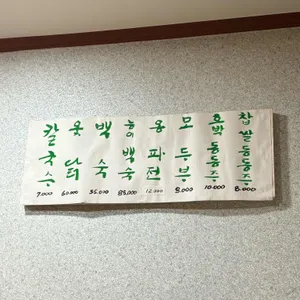 칼국수
7.000
옻닭
60.000
백숙
35.000
백숙
85,000
파전
12.000
모두부
8.000
호박동동주
10.000
찹쌀동동주
8.000